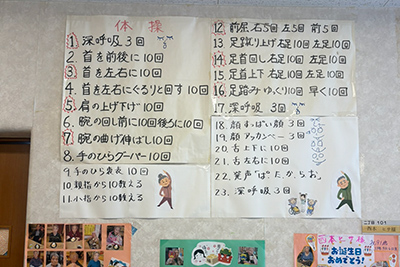 体操
1. 深呼吸 3回
2. 首を前後に 10回
3. 首を左右に 10回
4. 首を左右にぐるりと回す 10回
5. 肩の上げ下げ 10回
6. 腕の回し前に10回後ろに10回
7. 腕の曲げ伸ばし 10回
8. 手のひらグーパー 10回
9. 手のひら裏表 10回
10. 親指から10数える
11. 小指から10数える
12. 前屈 右5回 左5回 前5回
13. 足蹴り上げ右足10回 左足10回
14. 足首回し右足10回 左足10回
15. 足首上下 右足10回 左足10回
16. 足踏み ゆっくり10回 早く10回
17. 深呼吸 3回
18. 顔すっぱい顔 3回
19. 顔アッカンベー 3回
20. 舌上下に 10回
21. 舌左右に 10回
22. 発声 "ぱ、た、か、ら、お"
23. 深呼吸 3回
お誕生日
おめでとう!